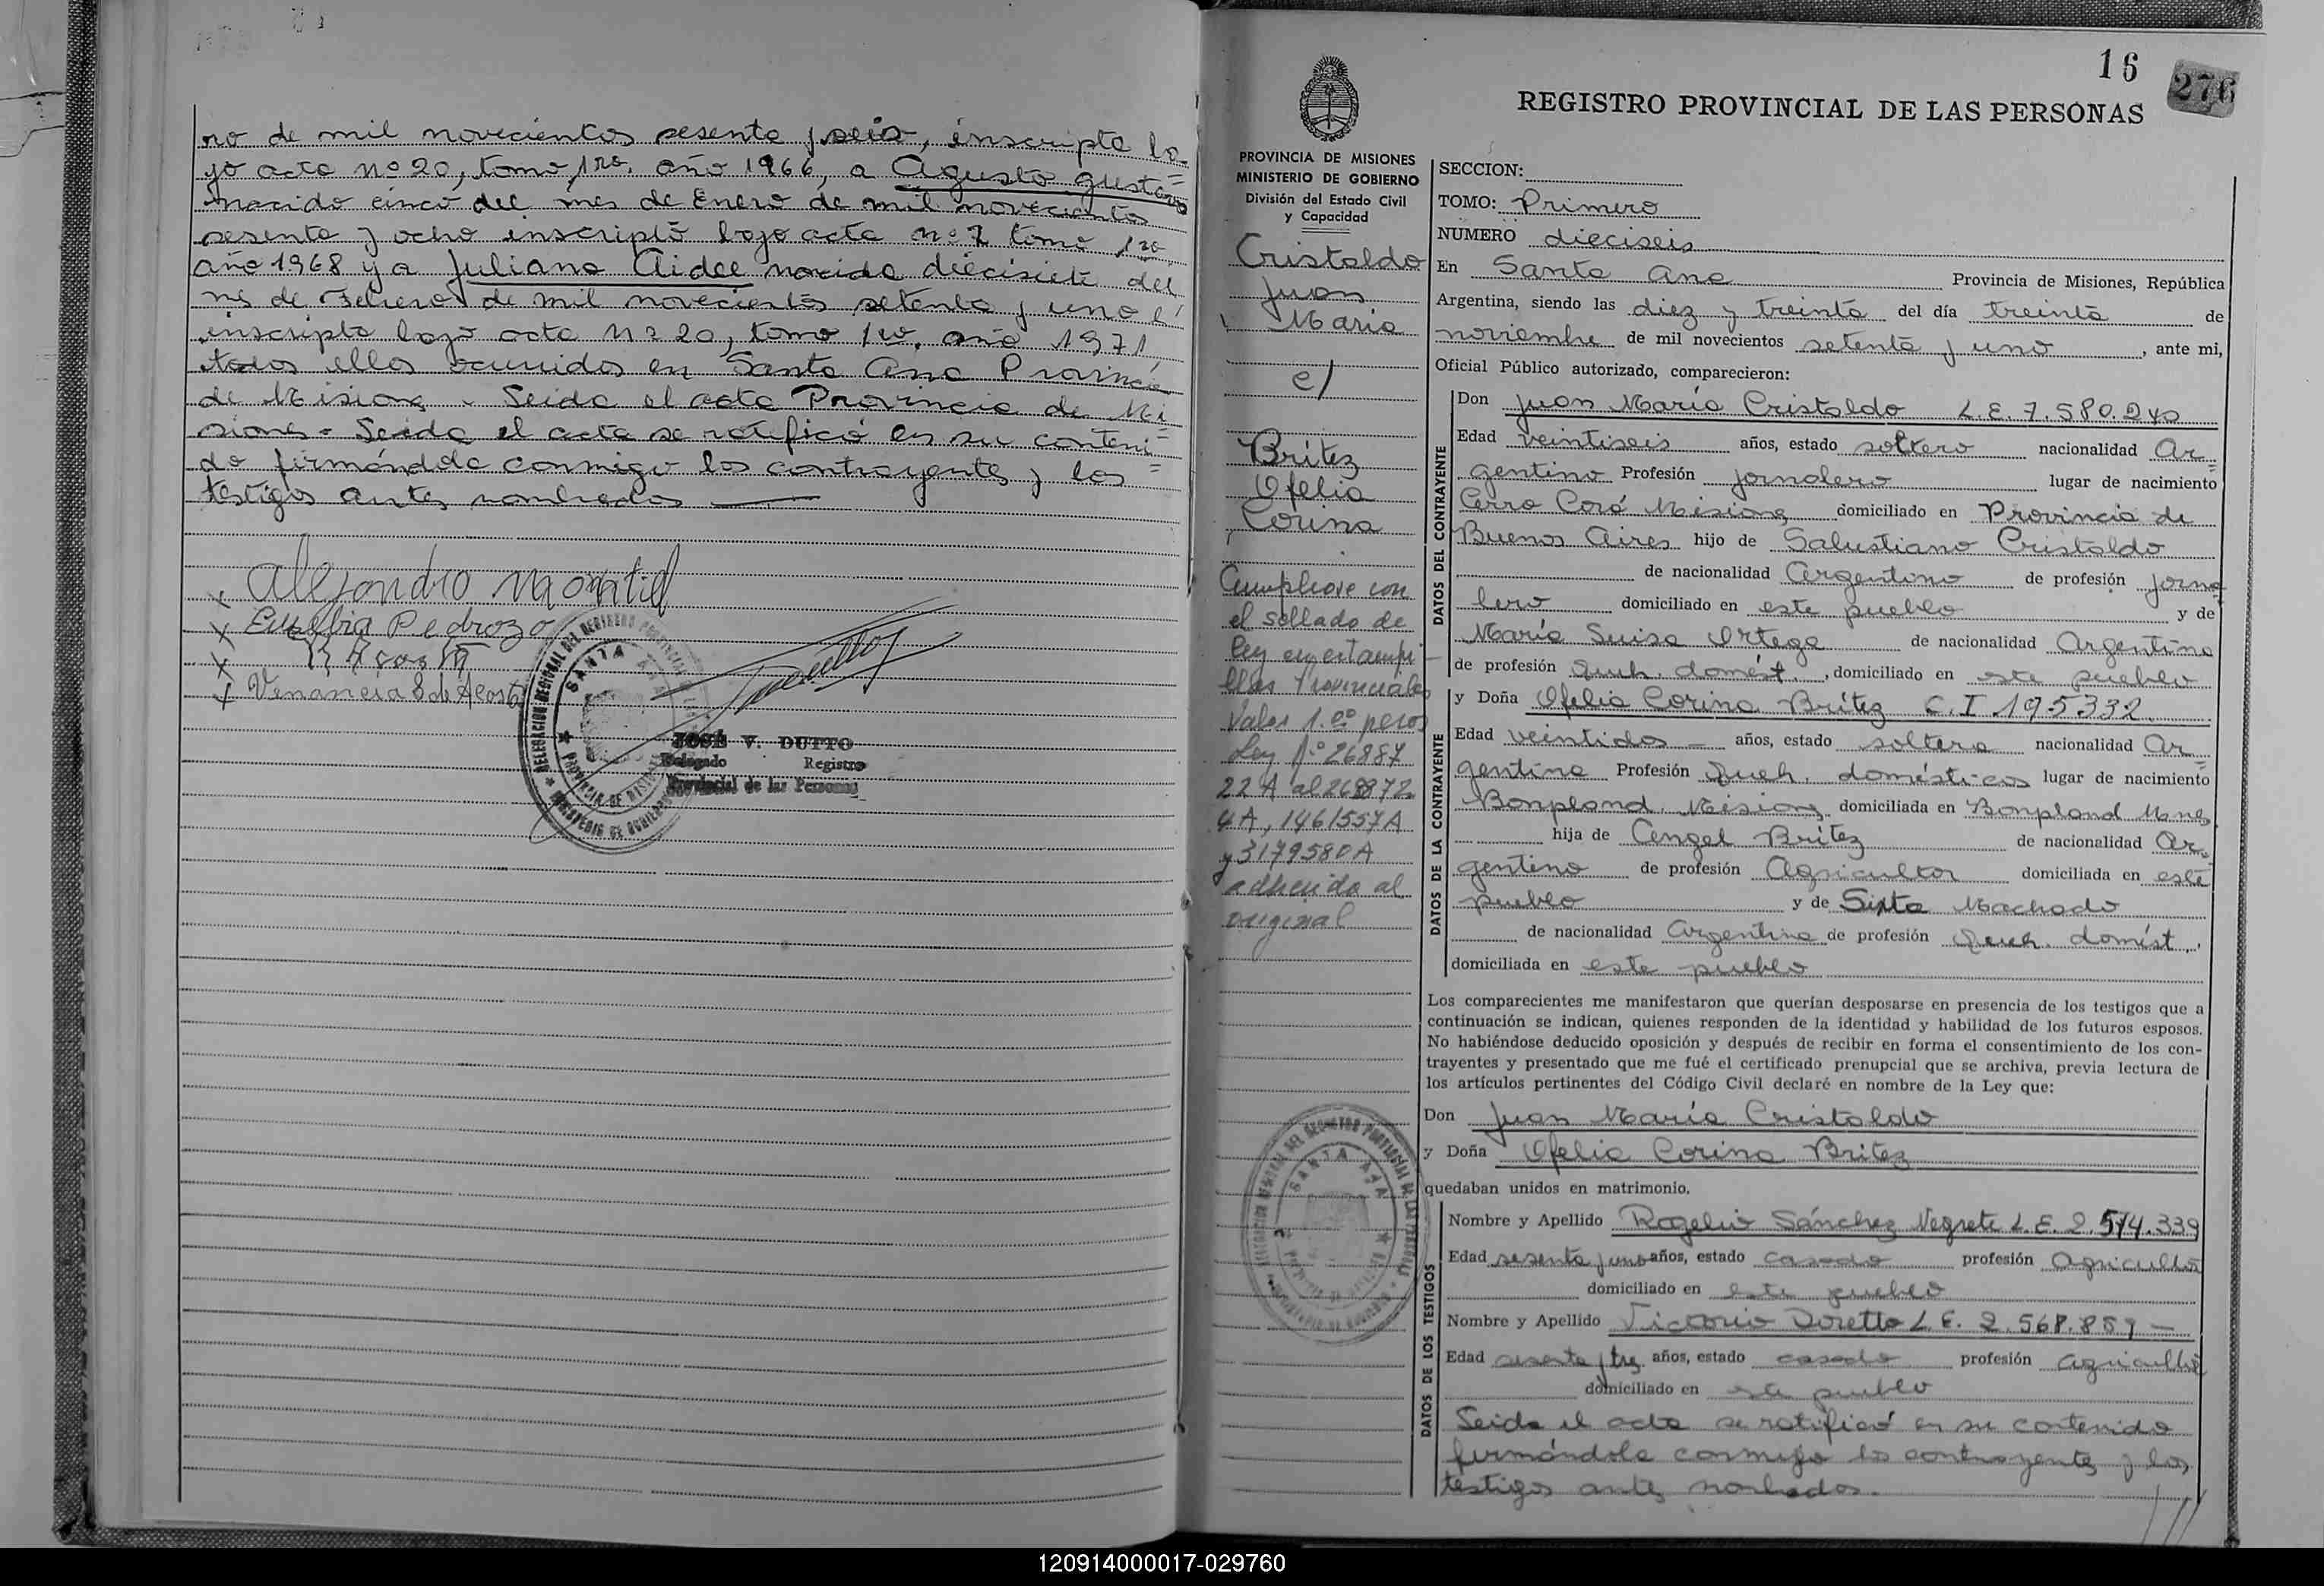 ro de mil novecientos sesenta y seis, inscripta ba=
jo acta nº 20, tomo 1ro. año 1966, a Agusto Gustavo
nacido cinco del mes de Enero de mil novecientos
sesenta y ocho inscripto bajo acta nº 7 tomo 1ro
año 1968 y a Juliana Aidee nacida diecisiete del
mes de Febrero de mil novecientos setenta y uno é
inscripta bajo acta nº 20, tomo 1ro. año 1971,
todos ellos ocurridos en Santa Ana Provincia
de Misiones. Leida el acta Provincia de Mi
siones = Leida el acta se ratificó en su conteni=
do firmándola conmigo los contrayentes y los =
testigos antes nombrados
x
x Eusebia Pedrozo
x
x Venancia de Acosta
DELEGACION REGIONAL DEL REGISTRO PROVINCIAL
SANTA ANA
PROVINCIA DE MISIONES
MINISTERIO DE GOBIERNO
JOSÉ V. DUTTO
Delegado Registro
Provincial de las Personas
16
276
REGISTRO PROVINCIAL DE LAS PERSONAS
PROVINCIA DE MISIONES
MINISTERIO DE GOBIERNO
División del Estado Civil
y Capacidad
Cristaldo
Juan
Maria
c/
Brítez
Ofelia
Corina
Cumpliose con
el sellado de
ley en estampi
llas Provinciales
Valor 1.00 pesos
Ley nº 26887
22 A al 268872
4A, 1461557A
y 3179580A
adherida al
original
SECCION:
TOMO: Primero
NUMERO dieciseis
En Santa Ana Provincia de Misiones, República
Argentina, siendo las diez y treinta del día treinta de
noviembre de mil novecientos setenta y uno, ante mi,
Oficial Público autorizado, comparecieron:
DATOS DEL CONTRAYENTE
Don Juan María Cristaldo L.E. 7.580.240
Edad veintiseis años, estado soltero nacionalidad Ar=
gentino Profesión jornalero lugar de nacimiento
Cerro Corá Misiones domiciliado en Provincia de
Buenos Aires hijo de Salustiano Cristaldo
de nacionalidad Argentino de profesión jorna
lero domiciliado en este pueblo y de
María Luisa Ortega de nacionalidad Argentina
de profesión Queh. domést., domiciliado en este pueblo
DATOS DE LA CONTRAYENTE
y Doña Ofelia Corina Brítez C.I 195332
Edad veintidos años, estado soltera nacionalidad Ar=
gentina Profesión Queh. domésticos lugar de nacimiento
Bonpland Misiones domiciliada en Bonpland Mnes
hija de Angel Brítez de nacionalidad Ar=
gentino de profesión Agricultor domiciliada en este
pueblo y de Sixta Machado
de nacionalidad Argentina de profesión Queh. domést.,
domiciliada en este pueblo
Los comparecientes me manifestaron que querían desposarse en presencia de los testigos que a
continuación se indican, quienes responden de la identidad y habilidad de los futuros esposos.
No habiéndose deducido oposición y después de recibir en forma el consentimiento de los con-
trayentes y presentado que me fué el certificado prenupcial que se archiva, previa lectura de
los artículos pertinentes del Código Civil declaré en nombre de la Ley que:
Don Juan María Cristaldo
y Doña Ofelia Corina Britez
quedaban unidos en matrimonio.
DATOS DE LOS TESTIGOS
Nombre y Apellido Rogelio Sánchez Negrete L.E. 2.514.339
Edad sesenta y uno años, estado casado profesión Agricultor
domiciliado en este pueblo
Nombre y Apellido Victorio Doretto L.E. 2.568.859 —
Edad sesenta y tres años, estado casado profesión agricultor
domiciliado en este pueblo
Leida el acta se ratificó en su contenido
firmándola conmigo los contrayentes y los
testigos antes nombrados.
120914000017-029760